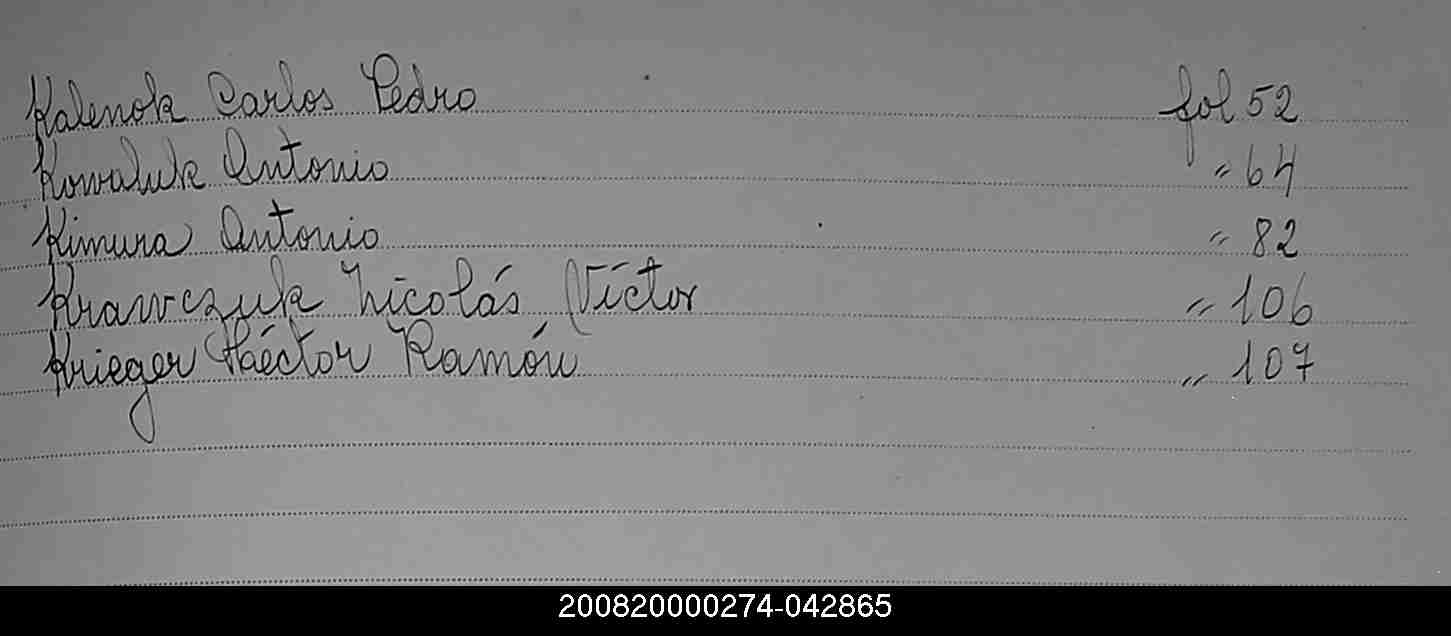 Kalenok Carlos Pedro fol 52
Kowaluk Antonio " 64
Kimura Antonio " 82
Krawczuk Nicolás Víctor " 106
Krieger Héctor Ramón " 107
200820000274-042865